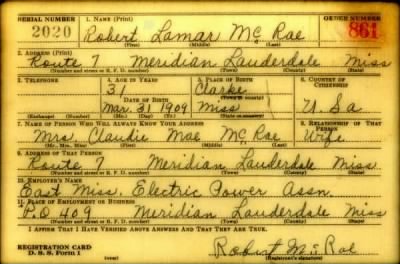 SERIAL NUMBER 1. NAME (Print) ORDER NUMBER
2020 Robert Lamar Mc Rae 861
(First) (Middle) (Last)
2. ADDRESS (Print)
Route 7 Meridian Lauderdale Miss
(Number and street or R. F. D. number) (Town) (County) (State)
3. TELEPHONE 4. AGE IN YEARS 5. PLACE OF BIRTH 6. COUNTRY OF CITIZENSHIP
31 Clarke
DATE OF BIRTH (Town or county)
Mar. 31 1909 Miss U. S a
(Exchange) (Number) (Mo.) (Day) (Yr.) (State or country)
7. NAME OF PERSON WHO WILL ALWAYS KNOW YOUR ADDRESS 8. RELATIONSHIP OF THAT PERSON
Mrs. Claudie Mae Mc Rae Wife
(Mr., Mrs., Miss) (First) (Middle) (Last)
9. ADDRESS OF THAT PERSON
Route 7 Meridian Lauderdale Miss
(Number and street or R. F. D. number) (Town) (County) (State)
10. EMPLOYER'S NAME
East Miss. Electric Power Assn.
11. PLACE OF EMPLOYMENT OR BUSINESS
P.O 409 Meridian Lauderdale Miss
(Number and street or R. F. D. number) (Town) (County) (State)
I AFFIRM THAT I HAVE VERIFIED ABOVE ANSWERS AND THAT THEY ARE TRUE.
REGISTRATION CARD Robert Mc Rae
D. S. S. Form 1 (over) (Registrant's signature)